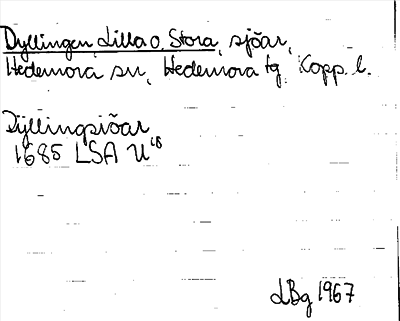 Dyllingen, Lilla o. Stora, sjöar,
Hedemora sn, Hedemora tg. Kopp. l.
Dÿllingsiöar
1685 LSA U18
LBg 1967